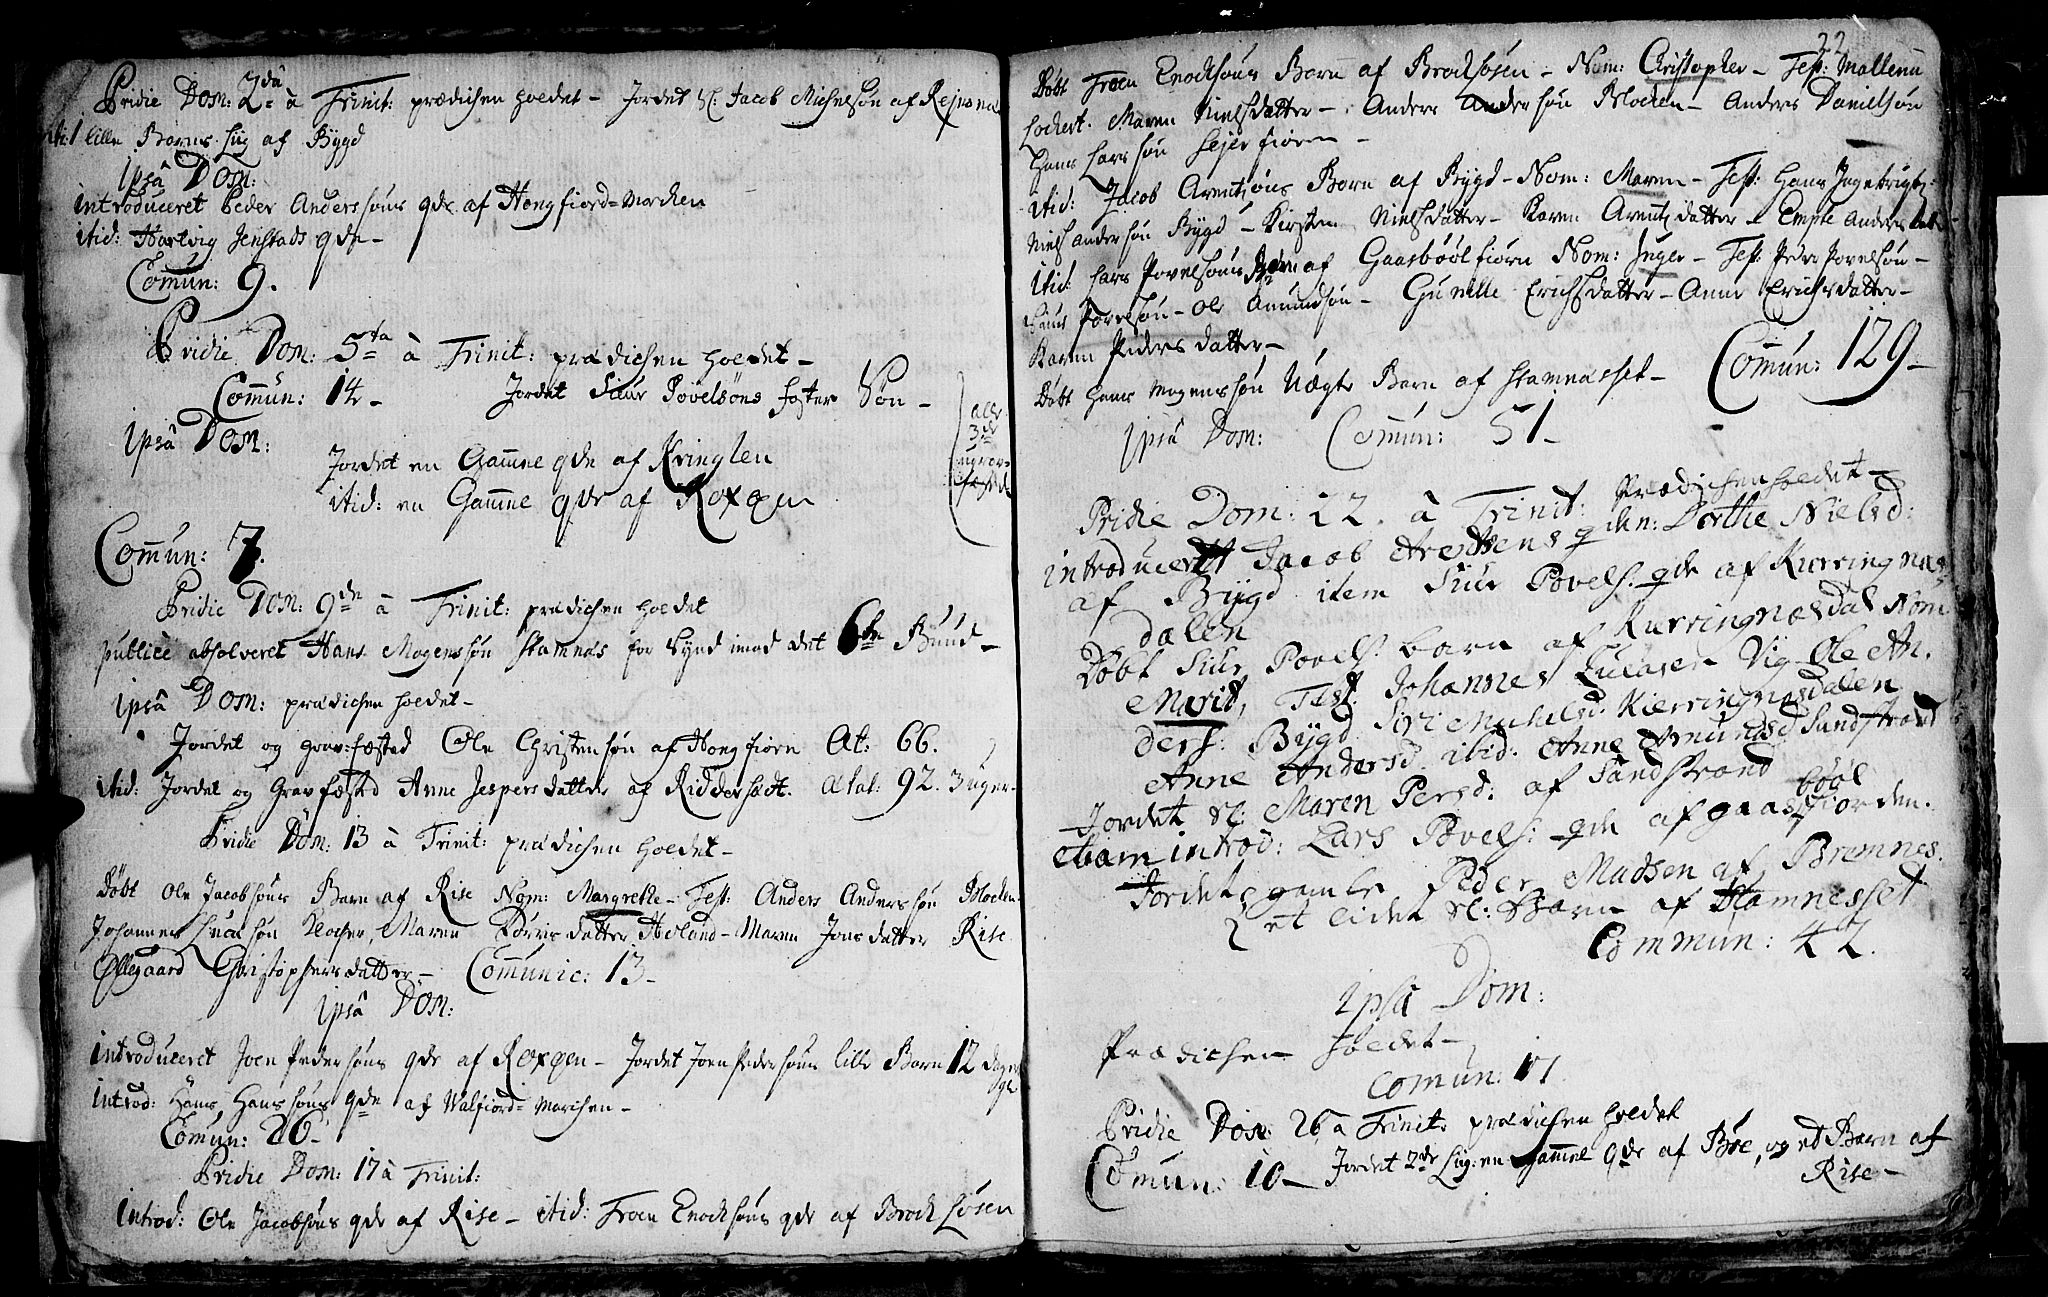 Pridie Dom: 2da à Trinit: prædichen holdet – Jordet Sl: Jacob Michelsøn af Rejnsnæs
itid 1 lille Barns lig af Bygd
Ipsâ Dom:
introduceret Peder Anderssøns qde af Hongfiord-Marchen
itid: Hartvig Jenstads qde –
Comun: 9.
Pridie Dom: 5ta à Trinit: prædichen holdet –
Comun: 14 – Jordet Siur Povelsøns foster Søn –
alle 3de
Ipsâ Dom:
Jordet en Gammel qde af Kringlen
itid: en Gammel qde af Roxøen
Comun: 7.
Pridie Dom: 9de à Trinit: prædichen holdet
publicè absolveret Hans Mogenssøn Stamnæs for Synd imod det 6te Bud –
Ipsâ Dom: prædichen holdet –
Jordet og gravfæsted Ole Christensøn af Hongfiorn Æt: 66.
itid: Jordet og Gravfæsted Anne Jespersdatter af Riddersædt. Ætat: 92. 3 uger –
Pridie Dom: 13 à Trinit: prædichen holdet –
Døbt Ole Jacobsøns Barn af Rise Nom: Margrethe – Test: Anders Anderssøn Bloden
Johannes Ivarsøn Maren Hofland – Maren Jonsdatter Rise
Øllegaard Christophersdatter – Comunic: 13 –
Ipsâ Dom:
introduceret Joen Pedersøns qde af Roxøen – Jordet Joen Pedersøns lille Barn 12 dager gl
introd: Hans Hanssøns qde af Walfiord-Marchen –
Comun: 26 –
Pridie Dom: 17 à Trinit:
introd: Ole Jacobsøns qde af Rise – itid: Troen Enochsøns qde af Brochløsen
22
Døbt Troen Enochsøns Barn af Brochløsen – Nom: Christopher – Test: Mallenu
Lochert. Maren Nielsdatter – Anders Andersøn Bloden – Anders Danielsøn
Hans Larssøn Sejerfiorn –
itid: Jacob Arentsøns Barn af Bygd – Nom: Maren – Test: Hans Ingebrigts:
Niels Andersøn Bygd – Kirsten Nielsdatter – Karen Arentsdatter – Anders
Itid: Lars Povelsøns Barn af Gaasbøølfiorn Nom: Inger – Test: Peder Povelsøn –
Siur Povelsøn – Ole Amundsøn – Gunille Erichsdatter – Anne Erichsdatter –
Karen Pedersdatter –
Døbt Hans Mogensøn Uægte Barn af Stamnæsset – Comun: 129 –
Ipsâ Dom: Comun: 51 –
Pridie Dom: 22. à Trinit: Prædichen holdet –
introduceret Jacob Arentsens qden: Dorthe Nielsd:
af Bygd item Siur Povels: qde af Kierringnæs
dalen
Døbt Siur Povels: barn af Kierringnæsdal Nom
Marit, Test. Johannes Lucasen Vig Ole An
ders: Bygd Siri Michelsd. Kierringnæsdalen
Anne Andersd. itid: Anne Amundsd Sandstrand
Jordet Sl: Maren Persd: af Sandstrand
Etiam introd: Lars Povels: qde af gaasbøølfiorden.
Jordet gamle Peder Madsen af Bremnes.
et lidet Sl: Barn af Stamnesset
Commun: 42.
Ipsâ Dom:
Prædichen holdet –
Comun: 17
Pridie Dom: 26 à Trinit: prædichen holdet
Comun: 10 – Jordet 2de Lig: en gammel qde af Bøe, og et Barn af
Rise –